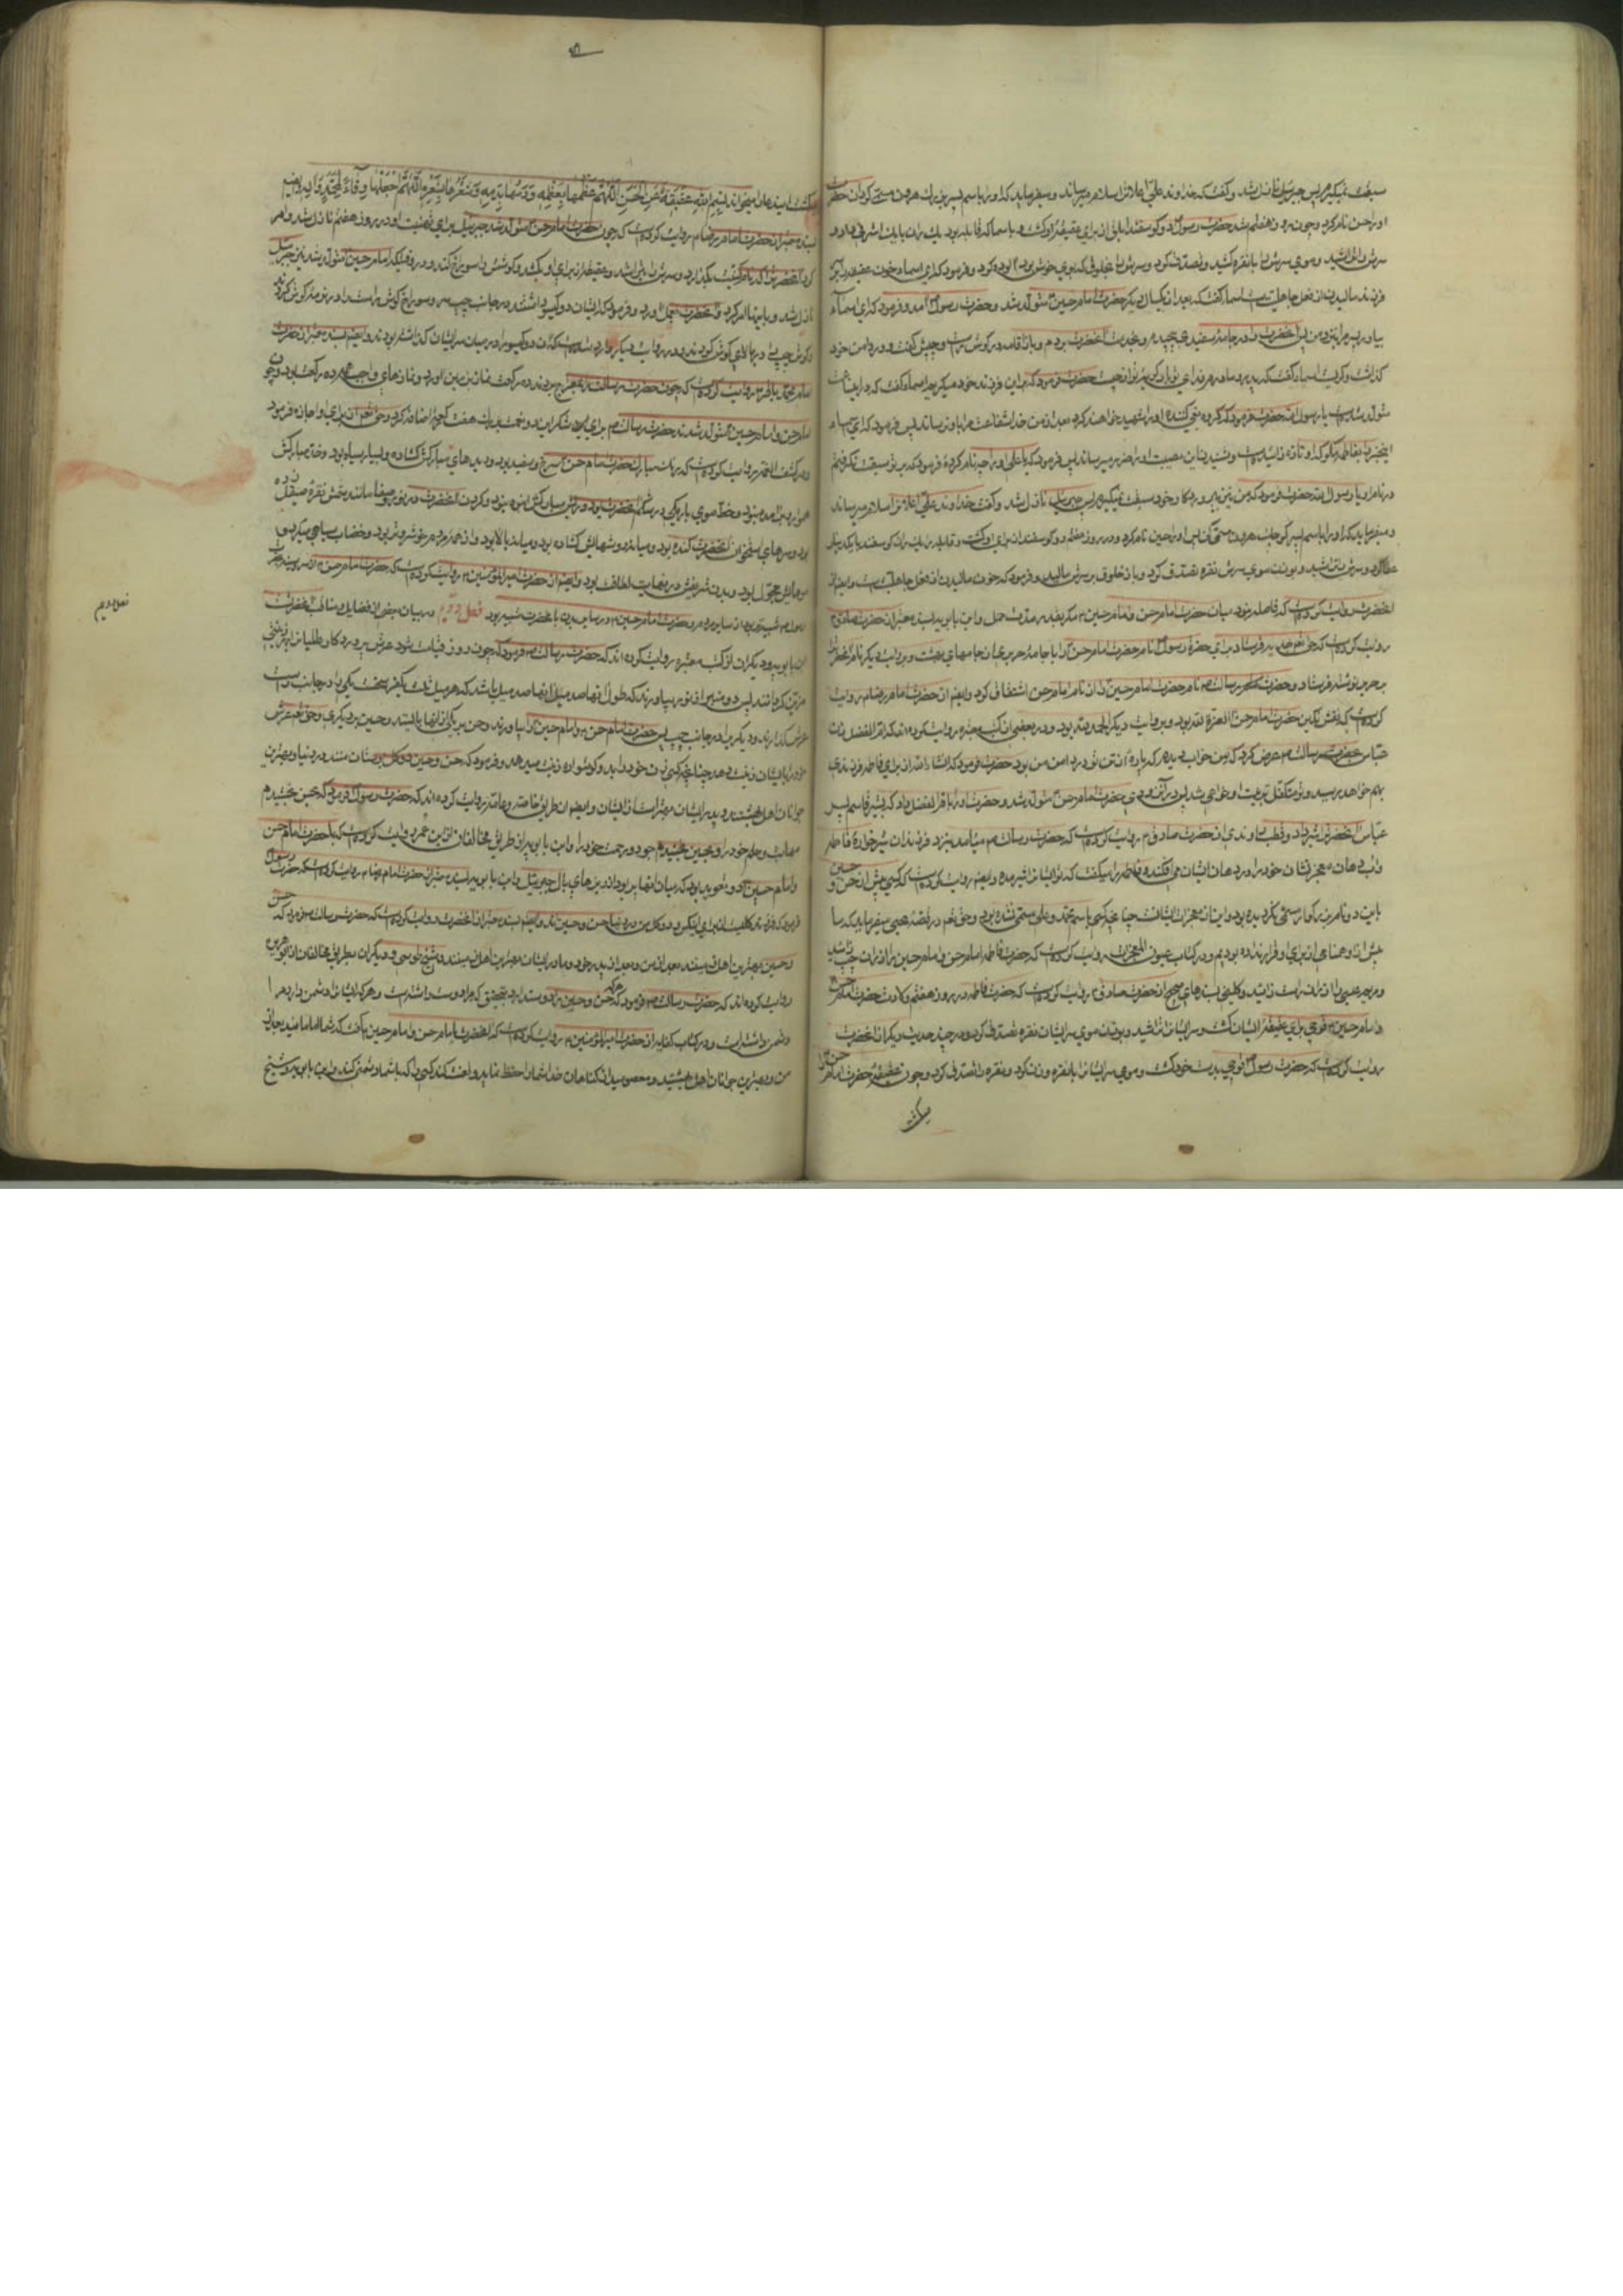 سبقت نمیگیرم پس جبرئیل نازل شد و گفت که خداوند علی اعلا ترا سلام میرساند و میفرماید که او را باسم پسر بزرگ هرون مسمی کردان حضرت
او را حسن نام کرد و چون روز هفتم شد حضرت رسول دو گوسفند ابلق از برای عقیقه او کشت و باسما که قابله بود یک ران با یک اشرفی داد و
سرش را تراشید و موی سرش را با نقره کشید و تصدق کرد و سرش را بخلوقی که بوی خوش بود آلوده کرد و فرمود که ای اسما خون عقیقه را بر
فرزند مالیدن از فعل جاهلیت است اسما گفت که بعد از یکسال دیگر حضرت امام حسین متولد شد و حضرت رسول آمد و فرمود که ای اسما
بیاور پسر مرا نزد من پس آنحضرت را در جامه سفیدی پیچیدم و بخدمت آنحضرت بردم و بانک اقامه در گوش راست و چپش گفت و در دامن خود
گذاشت و گریست اسما گفت که پدر و مادرم فدای تو باد گریه تو از چیست حضرت فرمود که برای این فرزند خود میگریم اسما گفت که در این ساعت
متولد شده است یا رسول الله حضرت فرمود که گروه ستم کننده او را شهید خواهند کرد بعد از من خدا شفاعت مرا باو نرساند پس فرمود که ای اسما
این خبر را بفاطمه مگو که او تازه زائیده است و شنیدن این مصیبت او را ضرر میرساند پس فرمود که یا علی او را چه نام کرده فرمود که بر تو سبقت نگرفتم
در نام او یا رسول الله حضرت فرمود که من نیز بر پروردگار خود سبقت نمیگیرم پس جبرئیل نازل شد و گفت خداوند علی اعلا ترا سلام میرساند
و میفرماید که او را باسم پسر کوچک هرون مسمی گردان پس او را حسین نام کرد و در روز هفتم دو گوسفند از برای او کشت و قابله را یک ران گوسفند با یک دینار
عطا کرد و سرش تراشید و بوزن موی سرش نقره تصدق کرد و باز خلوق بر سرش مالید و فرمود که خون مالیدن از فعل جاهلیت است و ایضا از
آنحضرت روایت کرده است که فاصله نبود میان حضرت امام حسن و امام حسین مگر بقدر مدت حمل و ابن بابویه بسند معتبر از حضرت صادق
روایت کرده است که حق تعالی هدیه فرستاد برای حضرت رسول نام حضرت امام حسن را با جامه حریری از جامهای بهشت و بروایت دیگر نام آنحضرت را
بر حریر نوشته فرستاد و حضرت رسالت نام حضرت امام حسین را از نام امام حسن اشتقاق کرد و ایضا از حضرت امام رضا روایت
کرده است که نقش نگین حضرت امام حسن العزة لله بود و بروایت دیگر الحمد لله بود و در بعضی از کتب معتبره روایت کرده اند که ام الفضل زن
عباس بحضرت رسالت عرض کرد که من خواب دیدم که پاره از تن تو در دامن من بود حضرت فرمود که انشاء الله از برای فاطمه فرزندی
بهم خواهد رسید و تو متکفل تربیت او خواهی شد پس در آن زودی حضرت امام حسن متولد شد و حضرت او را بام الفضل داد که بشیر قاسم پسر
عباس آنحضرت را شیر داد و قطب راوندی از حضرت صادق روایت کرده است که حضرت رسالت میآمد بنزد فرزندان شیرخواره فاطمه
و آب دهان معجز نشان خود را در دهان ایشان می افکند و فاطمه را میگفت که تو ایشان را شیر مده و ایضا روایت کرده است که کسی پیش از حسن و حسین
باین دو نام بزرگوار مسمی نگردیده بود و این از معجزات ایشانست چنانچه کسی باسم محمد و علی مسمی نشده بود و حق تعالی در قصه یحیی میفرماید که ما
پیش از او همنامی از برای او قرار نداده بودیم و در کتاب عیون المعجزات روایت کرده است که حضرت فاطمه امام حسن و امام حسین را از ران چپ زائید
و مریم عیسی را از ران راست زائید و کلینی بسندهای صحیح از حضرت صادق روایت کرده است که حضرت فاطمه در روز هفتم ولادت حضرت امام حسن
و امام حسین قوچی برای عقیقه ایشان کشت و سر ایشان را تراشید و بوزن موی سر ایشان نقره تصدق کرد و در چند حدیث دیگر از آنحضرت
روایت کرده است که حضرت رسول قوچی بدست خود کشت و موی سر ایشان را با نقره وزن کرد و نقره را تصدق کرد و چون عقیقه حضرت امام حسن را
میکشت
میکشت این دعا را میخواند بسم الله عقیقة عن الحسن اللهم عظمها بعظمه و دمها بدمه و شعرها بشعره اللهم اجعلها وقاء لمحمد و آله و ایضا
بسند معتبر از حضرت امام رضا روایت کرده است که چون حضرت امام حسن متولد شد جبرئیل برای تهنیت او در روز هفتم نازل شد و امر
کرد آنحضرت را که نام و کنیت بگذارد و سرش را بتراشد و عقیقه از برای او بکشد و گوشش را سوراخ کند و در وقتیکه امام حسین متولد شد نیز جبرئیل
نازل شد و باینها امر کرد و آنحضرت بعمل آورد و فرمود که ایشان دو گیسو داشتند در جانب چپ سر و سوراخ گوش راست را در نرمه گوش کرده
و گوش چپ را در بالای گوش کردند و در روایت دیگر وارد شده است که آن دو گیسو را در میان سر ایشان گذاشته بودند و ایضا بسند معتبر از حضرت
امام محمد باقر روایت کرده است که چون حضرت رسالت را بمعراج بردند ده رکعت نماز بزمین آورد و نمازهای واجب ده رکعت بود و چون
امام حسن و امام حسین متولد شدند حضرت رسالت برای شکر این دو نعمت هفت رکعت اضافه کرد و حق تعالی از برای او اجازه فرمود
و در کشف الغمه روایت کرده است که رنگ مبارک حضرت امام حسن سرخ و سفید بود و دیدهای مبارکش گشاده و بسیار سیاه بود و خد مبارکش
هموار بود برآمده نبود و خط موی باریکی در شکم آنحضرت بود و ریش مبارکش انبوه بود و گردن آنحضرت در نور و صفا مانند نقره صیقل زده
بود و سرهای استخوان آنحضرت گنده بود و میان دو شهایش گشاده بود و میانه بالا بود و از همه مردم خوشروتر بود و خضاب بسیاهی میکرد و
موهایش مجعد بود و بدن شریفش در نهایت لطافت بود و ایضا از حضرت امیر المؤمنین روایت کرده است که حضرت امام حسن از سر تا سینه بحضرت
رسول شبیه‌تر بود از سایر مردم و حضرت امام حسین در سایر بدن بآنحضرت شبیه‌تر بود فصل دویم در بیان بعضی از فضایل و مناقب آنحضرت
ابن بابویه و دیگران از کتب معتبره روایت کرده اند که حضرت رسالت فرمود که چون روز قیامت شود عرش پروردگار عالمیان را بهر زینتی
مزین گردانند پس دو منبر از نور بیاورند که طول آنها صد میل باشد یکی را در جانب راست
عرش گذارند و دیگری را در جانب چپ پس حضرت امام حسن و امام حسین را بیاورند و حسن بر یکی از آنها بایستد و حسین بر دیگری و حق تعالی عرش
خود را بایشان زینت دهد چنانچه کسی زن خود را بدو گوشواره زینت میدهد و فرمود که حسن و حسین دو گل بوستان منند در دنیا و بهترین
جوانان اهل بهشتند و پدر ایشان بهتر است از ایشان و ایضا از طریق خاصه و عامه روایت کرده اند که حضرت رسول فرمود که بحسن بخشیدم
مهابت و حلم خود را و بحسین بخشیدم جود و رحمت خود را و ابن بابویه از طریق مخالفان از ابن عمر روایت کرده است که با حضرت امام حسن
و امام حسین دو تعویذ بود که میان آنها پر بود از پرهای بال جبرئیل و ابن بابویه بسند معتبر از حضرت امام رضا روایت کرده است که حضرت رسول
فرمود که فرزند گلیست از برای نیکان و دو گل من در دنیا حسن و حسین اند و ایضا بسند معتبر از آنحضرت روایت کرده است که حضرت رسالت فرمود که حسن
و حسین بهترین اهل زمینند بعد از من و بعد از پدر خود و مادر ایشان بهترین زنان اهل زمینند و شیخ طوسی و دیگران بطریق مخالفان از ابو هریره
روایت کرده اند که حضرت رسالت فرمود که هر که حسن و حسین را دوست دارد بتحقیق که مرا دوست داشته است و هر که ایشان را دشمن دارد مرا
دشمن داشته است و در کتاب کفایه از حضرت امیر المؤمنین روایت کرده است که آنحضرت با امام حسن و امام حسین گفت که شما امامانید بعد از
من و بهترین جوانان اهل بهشتید و معصومید از گناهان خدا شما را حفظ نماید و لعنت کند کسی را که با شما دشمنی کند و ابن بابویه و شیخ
فصل دویم